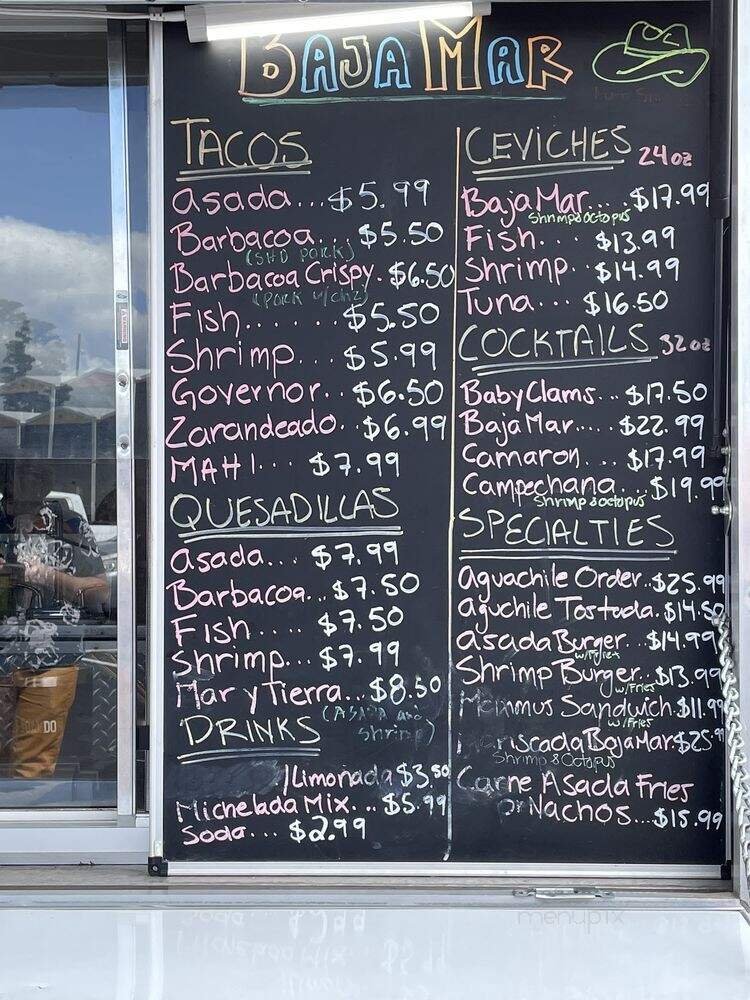 BAJA MAR
TACOS
Asada... $5.99
Barbacoa... $5.50
(SHD PORK)
Barbacoa Crispy. $6.50
(PORK w/chz)
Fish...... $5.50
Shrimp... $5.99
Governor.. $6.50
Zarandeado.. $6.99
MAHI... $7.99
QUESADILLAS
Asada... $7.99
Barbacoa... $7.50
Fish.... $7.50
Shrimp... $7.99
Mar y Tierra... $8.50
(ASADA and
shrimp)
DRINKS
/Limonada $3.50
Michelada Mix... $5.99
Soda... $2.99
CEVICHES 24oz
Baja Mar.... $17.99
Shrimp&octopus
Fish... $13.99
Shrimp.. $14.99
Tuna... $16.50
COCKTAILS 32oz
Baby Clams... $17.50
Baja Mar.... $22.99
Camaron.... $17.99
Campechana... $19.99
Shrimp&octopus
SPECIALTIES
Aguachile Order.. $25.99
Aguchile Tostada. $14.50
Asada Burger... $14.99
w/Fries
Shrimp Burger.. $13.99
w/Fries
Sandwich. $11.99
w/Fries
Baja Mar $25.99
Shrimp & Octopus
Carne Asada Fries
or Nachos... $15.99
DO
menupix